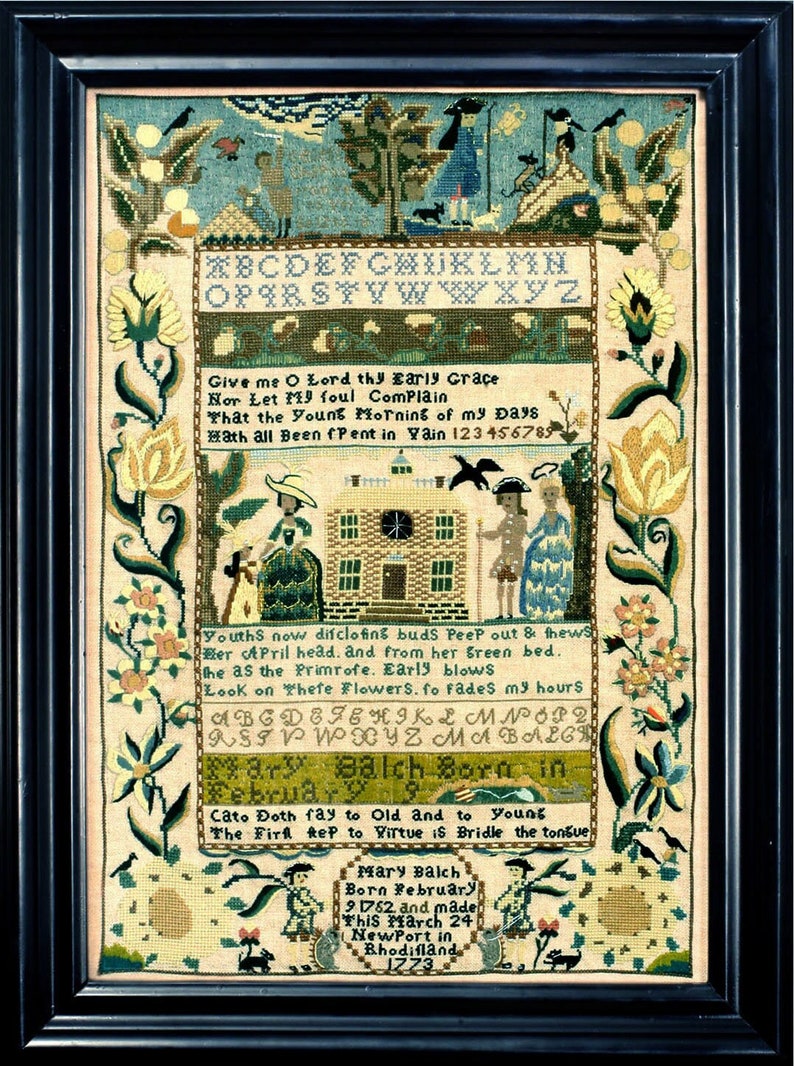 ABCDEFGHIJKLMN
OPQRSTVWWXYZ
Give me O Lord thy Early Grace
Nor Let My ſoul Complain
That the Young Morning of my Days
Hath all Been ſPent in Vain 123456789
Youths now diſcloſing buds PeeP out & ſhews
Her APril head. and from her green bed.
ſhe as the Primroſe. Early blows
Look on Theſe Flowers. ſo fades my hours
ABCDEFGHIKLMNOPQ
RSTVWXYZ MABALCH
Mary Balch Born in
February 9
Cato Doth ſay to Old and to Young
The Firſt ſteP to Virtue is Bridle the tongue
Mary Balch
Born February
9 1762 and made
This March 24
NewPort in
Rhodiſland
1773